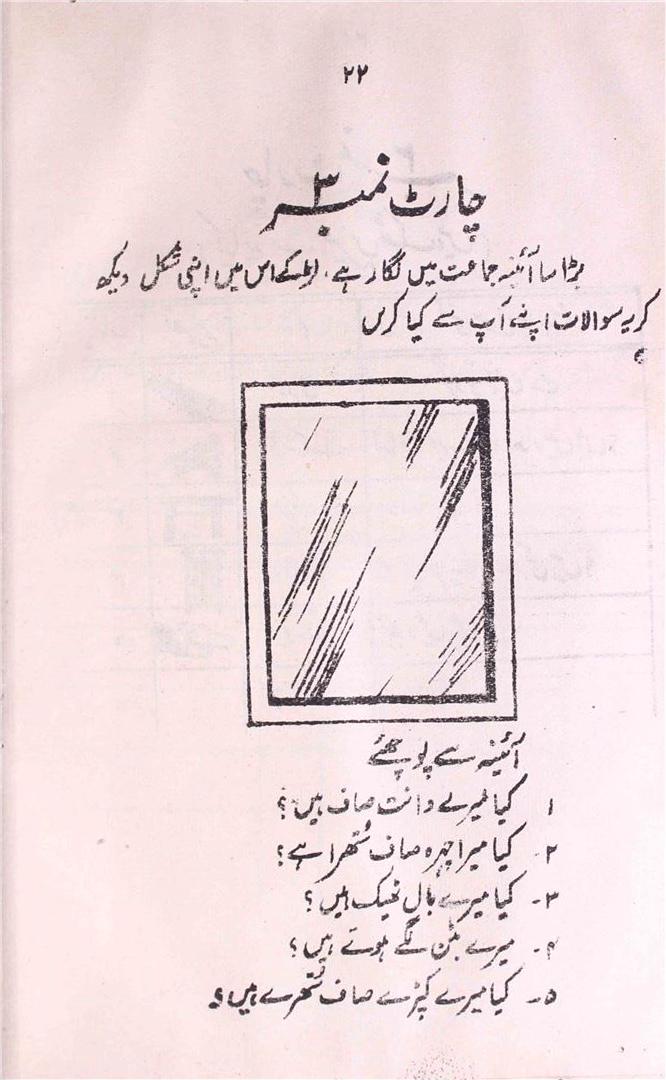 ۲۲
چارٹ نمبر ۳
بڑا سا آئینہ جماعت میں لگا رہے، لڑکے اس میں اپنی شکل دیکھ
کر یہ سوالات اپنے آپ سے کیا کریں
آئینہ سے پوچھئے
۱ کیا میرے دانت صاف ہیں؟
۲۔ کیا میرا چہرہ صاف ستھرا ہے؟
۳۔ کیا میرے بال ٹھیک ہیں؟
۴۔ میرے بٹن لگے ہوتے ہیں؟
۵۔ کیا میرے کپڑے صاف ستھرے ہیں؟